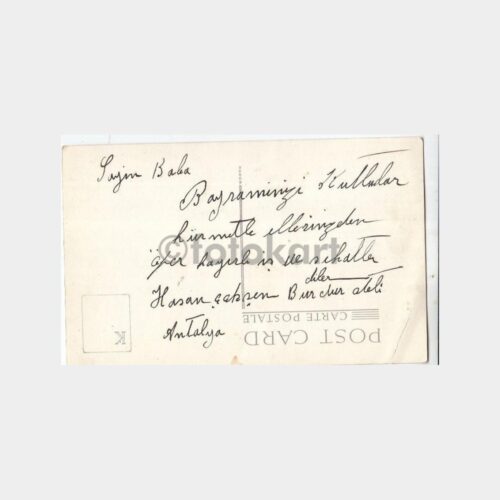 Sayın Baba
Bayramınızı Kutlular
hürmetle ellerinizden
öper hayırlı iş ve sıhatler
diler
Hasan Burdur oteli
Antalya
©fotokart
POST CARD
CARTE POSTALE
K